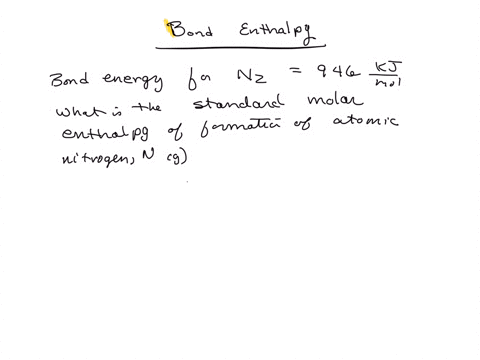 Bond Enthalpg
Bond energy for N2 = 946 KJ/mol
What is the standard molar
enthalpg of formation of atomic
nitrogen, N (g)